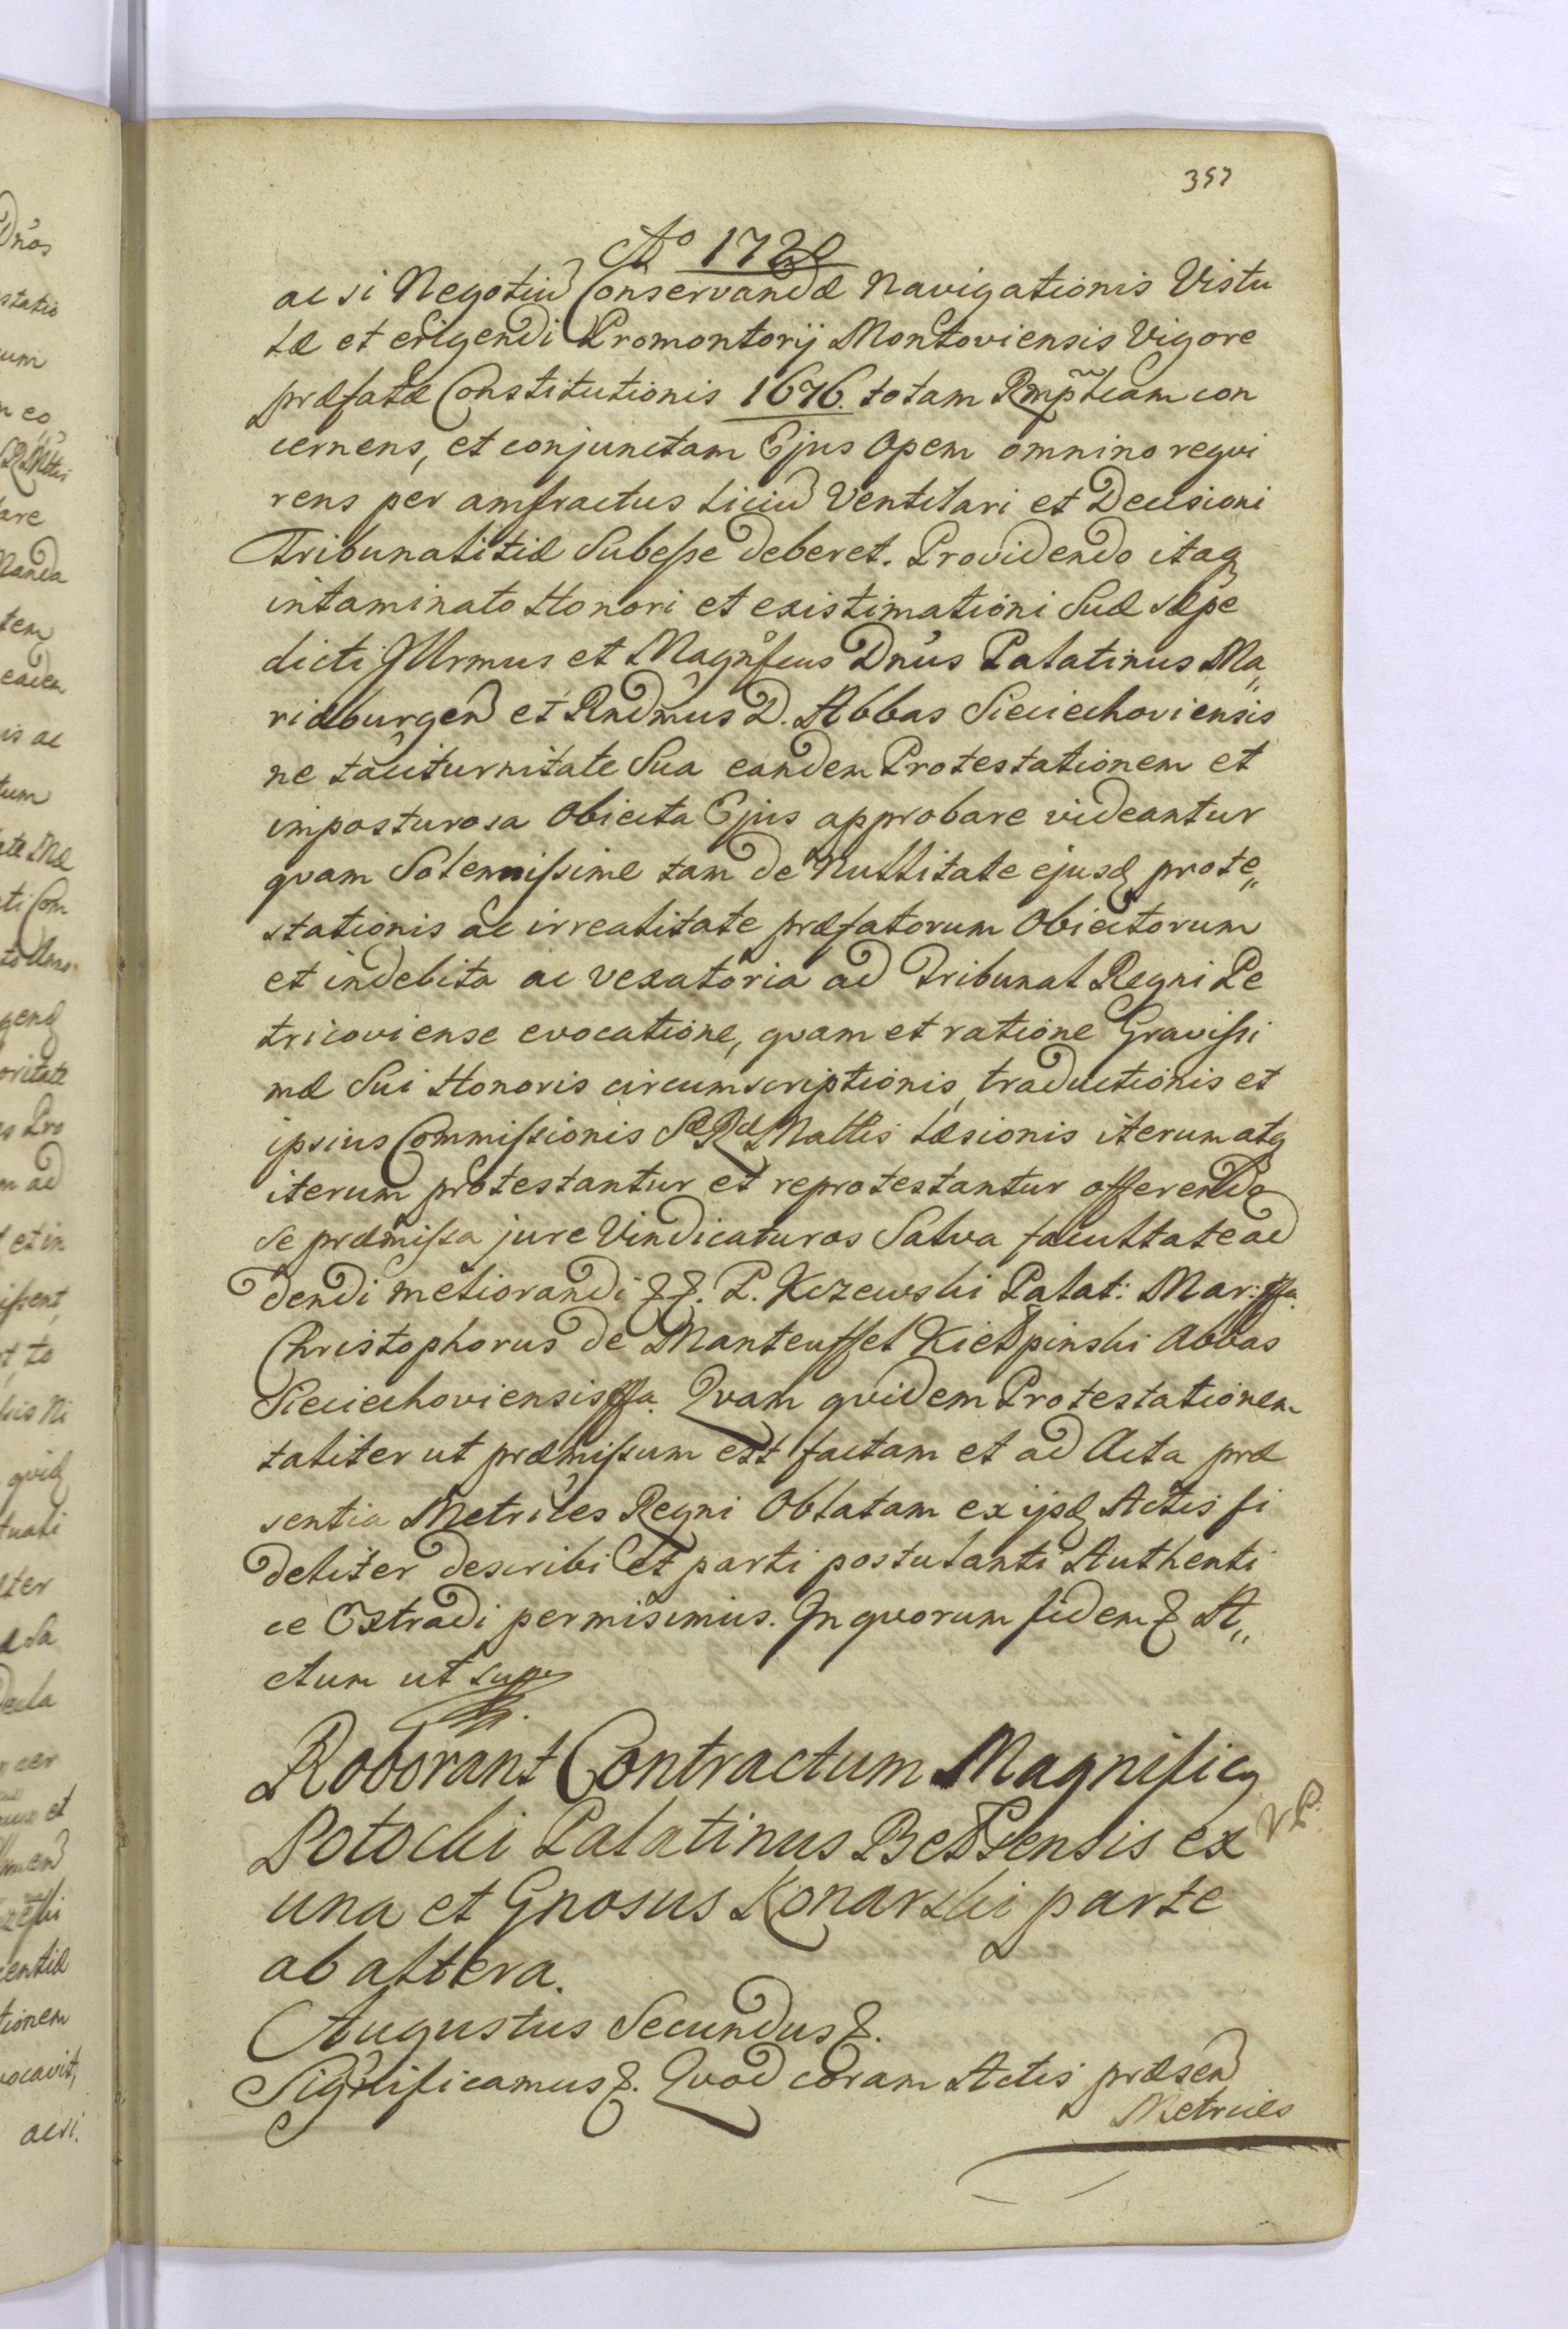 357
Ao 1720
ac si Negotiū Conservandæ Navigationis Vistu
læ et erigendi Promontorij Montoviensis Vigore
præfatæ Constitutionis 1676. totam Rmpticam con
cernens, et conjunctam Ejus Opem omnino requi
rens per amfractus Liciū Ventilari et Decisioni
Tribunalitiæ Subesse deberet. Providendo itaq
intaminato Honori et existimationi Suæ sæpe
dicti Illrmus et Magnificus Dnus Palatinus Ma„
riæburgen et Rndmus D. Abbas Sieciechoviensis
ne taciturnitate Sua eandem Protestationem et
imposturosa Obiecta Ejus approbare videantur
quam Solennissime tam de Nullitate ejusd prote„
stationis ac irrealitate præfatorum Obiectorum
et indebita ac vexatoria ad Tribunal Regni Pe
tricoviense evocatione, quam et ratione Gravissi
mæ Sui Honoris circumscriptionis, traductionis et
ipsius Commissionis Sæ Ræ Mattis læsionis iterum atq
iterum protestantur et reprotestantur offerendo
se præmissa jure Vindicaturos Salva facultate ad
dendi meliorandi &&. P. Kczewski Palat: Mar: ssa.
Christophorus de Manteuffel Kiełpinski Abbas
Sieciechoviensis ssa. Quam quidem Protestationem
taliter ut præmissum est factam et ad Acta præ
sentia Metrices Regni Oblatam ex ijsd Actis fi
deliter describi et parti postulanti Authenti
ce Extradi permisimus. In quorum fidem & A„
ctum ut supra
Roborant Contractum Magnificq
Potocki Palatinus Bełzensis ex
una et Gnosus Konarski parte
ab altera.
Augustus Secundus &.
Significamus &. Quod coram Actis præsen
Metrices